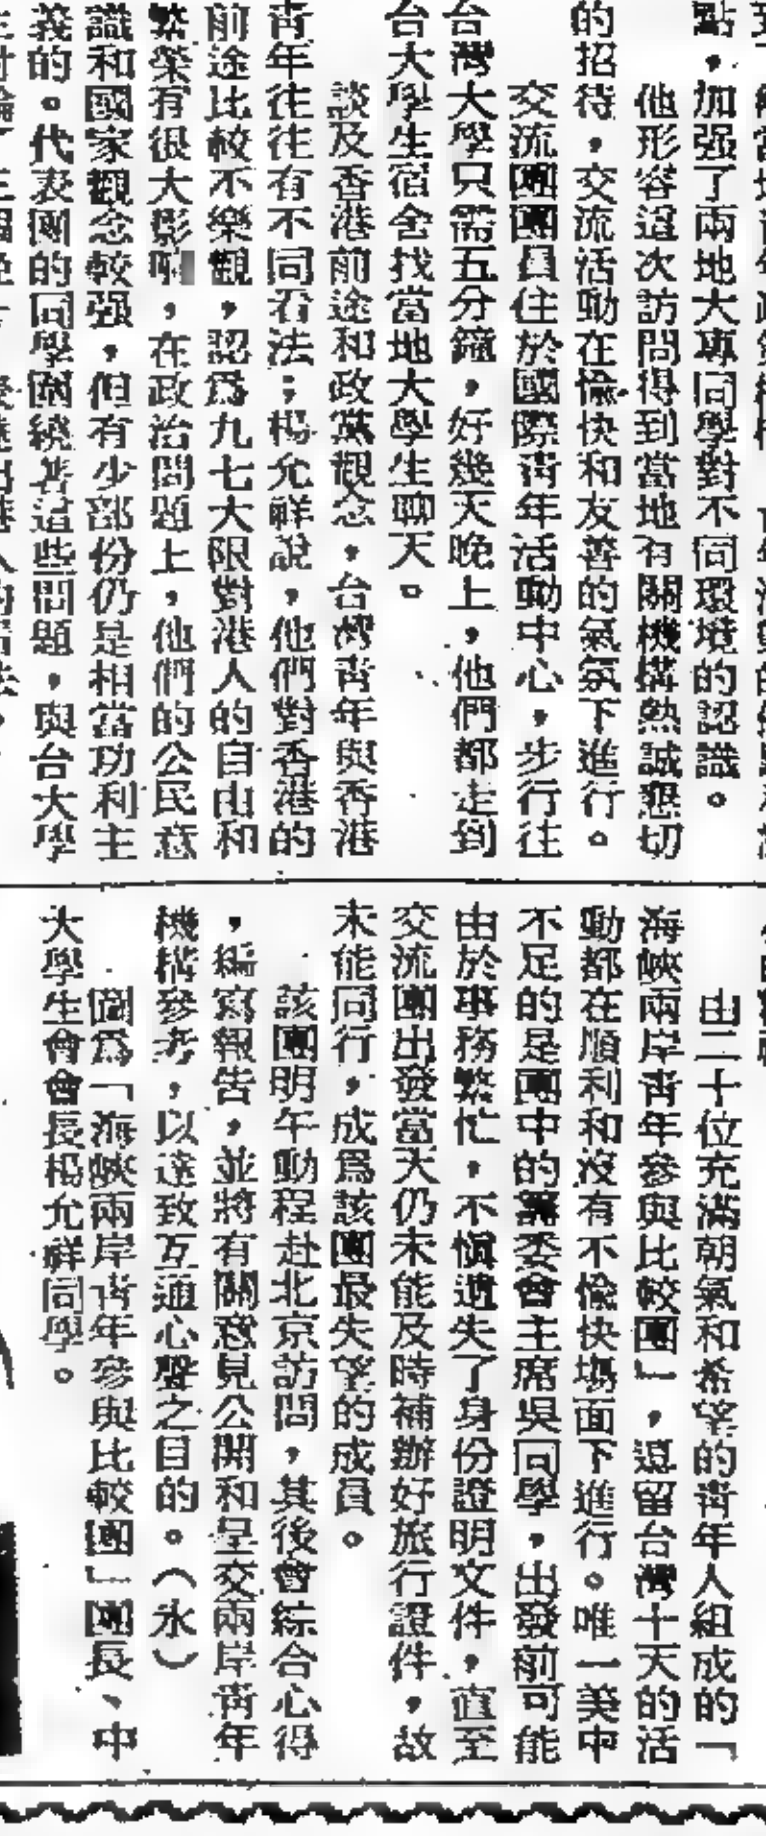 點，加强了兩地大專同學對不同環境的認識。
他形容這次訪問得到當地有關機構熱誠懇切
的招待，交流活動在愉快和友善的氣氛下進行。
交流團團員住於國際靑年活動中心，步行往
台灣大學只需五分鐘，好幾天晚上，他們都走到
台大學生宿舍找當地大學生聊天。
談及香港前途和政黨觀念，台灣靑年與香港
靑年往往有不同看法；楊允祥說，他們對香港的
前途比較不樂觀，認爲九七大限對港人的自由和
繁榮有很大影响，在政治問題上，他們的公民意
識和國家觀念較强，但有少部份仍是相當功利主
義的。代表團的同學圍繞著這些問題，與台大學
由二十位充滿朝氣和希望的靑年人組成的「
海峽兩岸靑年參與比較團」，逗留台灣十天的活
動都在順利和沒有不愉快塲面下進行。唯一美中
不足的是團中的籌委會主席吳同學，出發前可能
由於事務繁忙，不愼遺失了身份證明文件，直至
交流團出發當天仍未能及時補辦好旅行證件，故
未能同行，成爲該團最失望的成員。
該團明午動程赴北京訪問，其後會綜合心得
，編寫報告，並將有關意見公開和呈交兩岸靑年
機構參考，以達致互通心聲之目的。（永）
圖爲「海峽兩岸靑年參與比較團」團長、中
大學生會會長楊允祥同學。